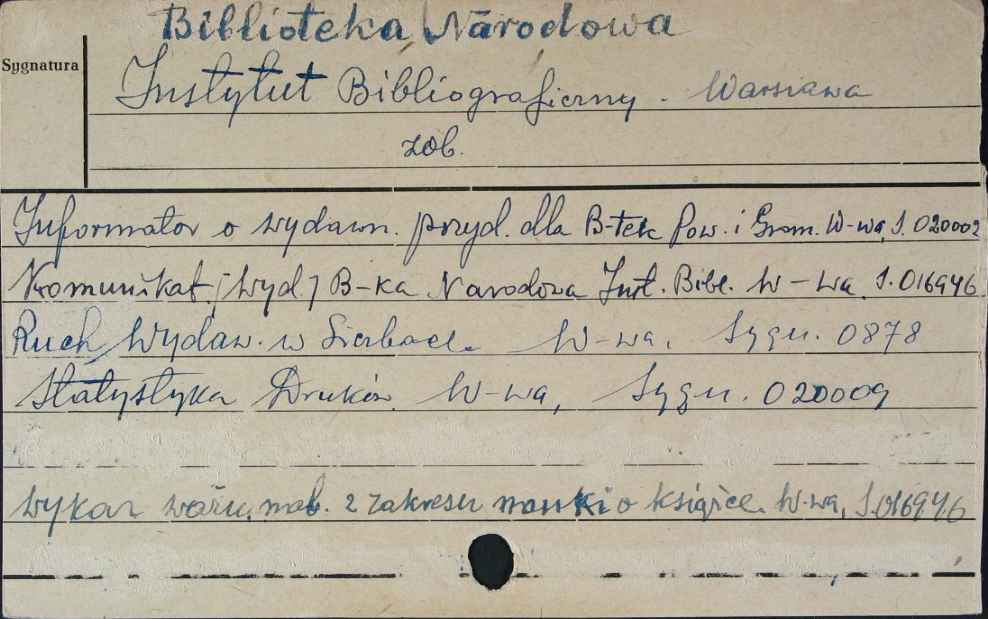 Biblioteka Narodowa
Sygnatura
Instytut Bibliograficzny. Warszawa
zob.
Informator o wydawn. przyd. dla B-tek Pow. i Grom. W-wa, S. 020002
Komunikat /wyd/ B-ka Narodowa Inst. Bibl. W-wa S. 016946
Ruch Wydaw. w Liczbach. W-wa, Sygn. 0878
Statystyka Druków W-wa, Sygn. 020009
Wykaz ważn. nab. z zakresu nauki o książce. W-wa, S. 016946